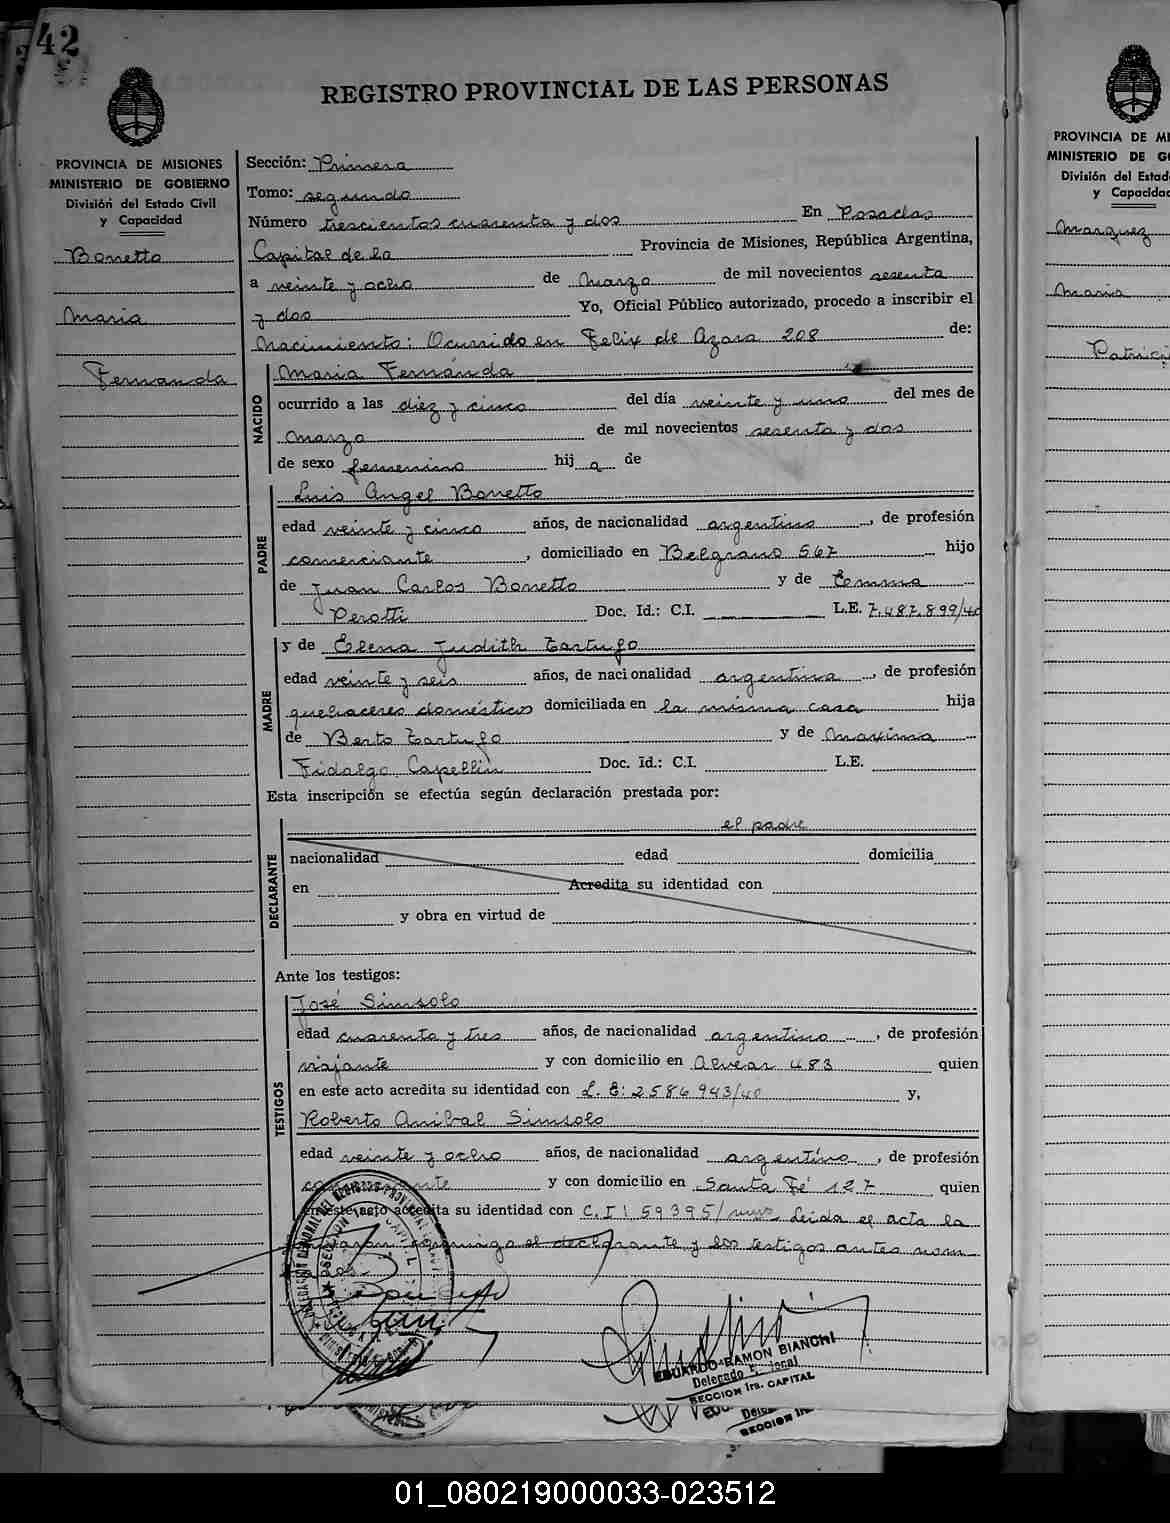 42
REGISTRO PROVINCIAL DE LAS PERSONAS
PROVINCIA DE MISIONES
MINISTERIO DE GOBIERNO
División del Estado Civil
y Capacidad
Bonetto
Maria
Fernanda
Sección: Primera
Tomo: segundo
Número trescientos cuarenta y dos En Posadas
Capital de la Provincia de Misiones, República Argentina,
a veinte y ocho de Marzo de mil novecientos sesenta
y dos Yo, Oficial Público autorizado, procedo a inscribir el
Nacimiento: Ocurrido en Felix de Azara 208 de:
NACIDO
Maria Fernanda
ocurrido a las diez y cinco del día veinte y uno del mes de
Marzo de mil novecientos sesenta y dos
de sexo femenino hij a de
PADRE
Luis Angel Bonetto
edad veinte y cinco años, de nacionalidad argentino, de profesión
comerciante, domiciliado en Belgrano 567 hijo
de Juan Carlos Bonetto y de Emma
Perotti Doc. Id.: C.I. L.E. 7.487.899/40
MADRE
y de Elena Judith Tartufo
edad veinte y seis años, de nacionalidad argentina, de profesión
quehaceres domésticos domiciliada en la misma casa hija
de Berto Tartufo y de Maxima
Fidalgo Capellin Doc. Id.: C.I. L.E.
Esta inscripción se efectúa según declaración prestada por:
DECLARANTE
el padre
nacionalidad edad domicilia
en Acredita su identidad con
y obra en virtud de
Ante los testigos:
TESTIGOS
José Simsolo
edad cuarenta y tres años, de nacionalidad argentino, de profesión
viajante y con domicilio en Alvear 483 quien
en este acto acredita su identidad con L.E: 2586943/40 y,
Roberto Anibal Simsolo
edad veinte y ocho años, de nacionalidad argentino, de profesión
y con domicilio en Santa Fé 127 quien
en este acto acredita su identidad con C.I: 59395/ Leida el acta la
el declarante y los testigos antes nom-
EDUARDO RAMON BIANCHI
Delegado
SECCION 1ra. CAPITAL
SECCION 1ra
PROVINCIA DE MI
MINISTERIO DE G
División del Estad
y Capacidad
Marquez
Maria
Patrici
01_080219000033-023512